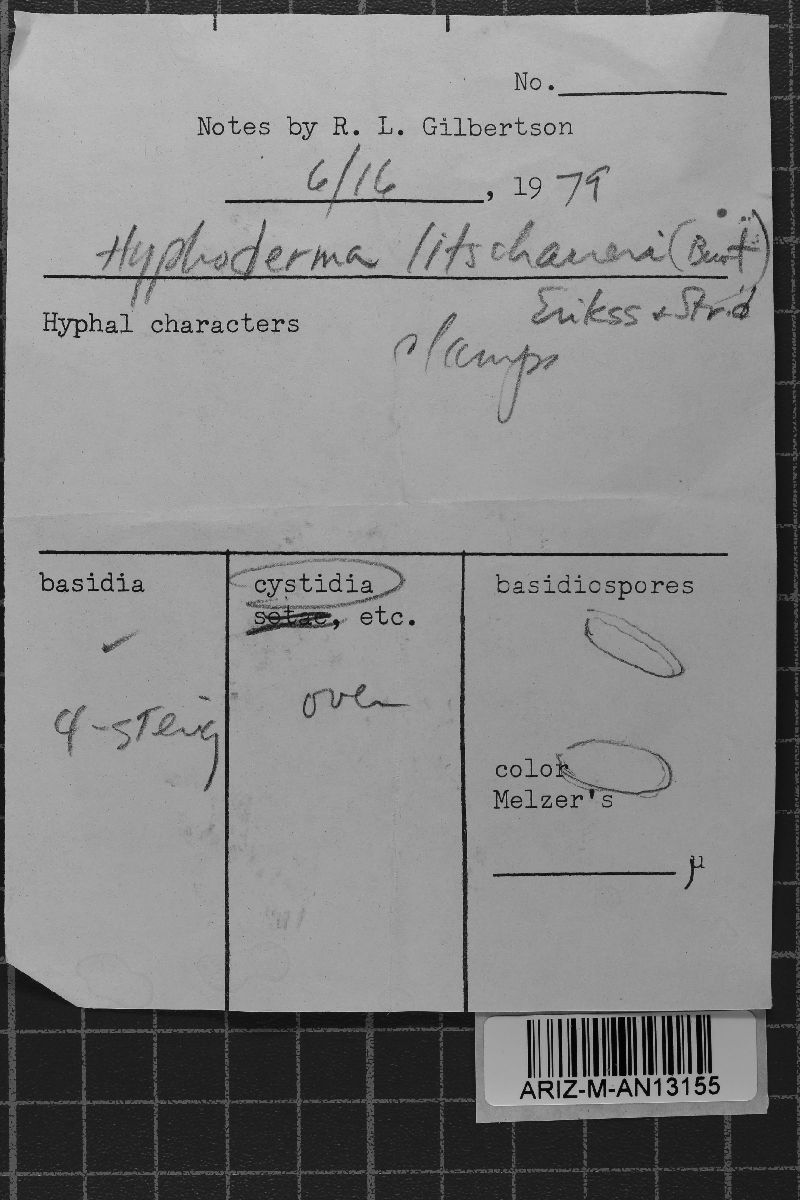 No.
Notes by R. L. Gilbertson
6/16, 1979
Hyphoderma litschaueri (Burt)
Erikss & Strid
Hyphal characters
clamps
basidia
4-sterig
cystidia
setae, etc.
over
basidiospores
color
Melzer's
µ
ARIZ-M-AN13155